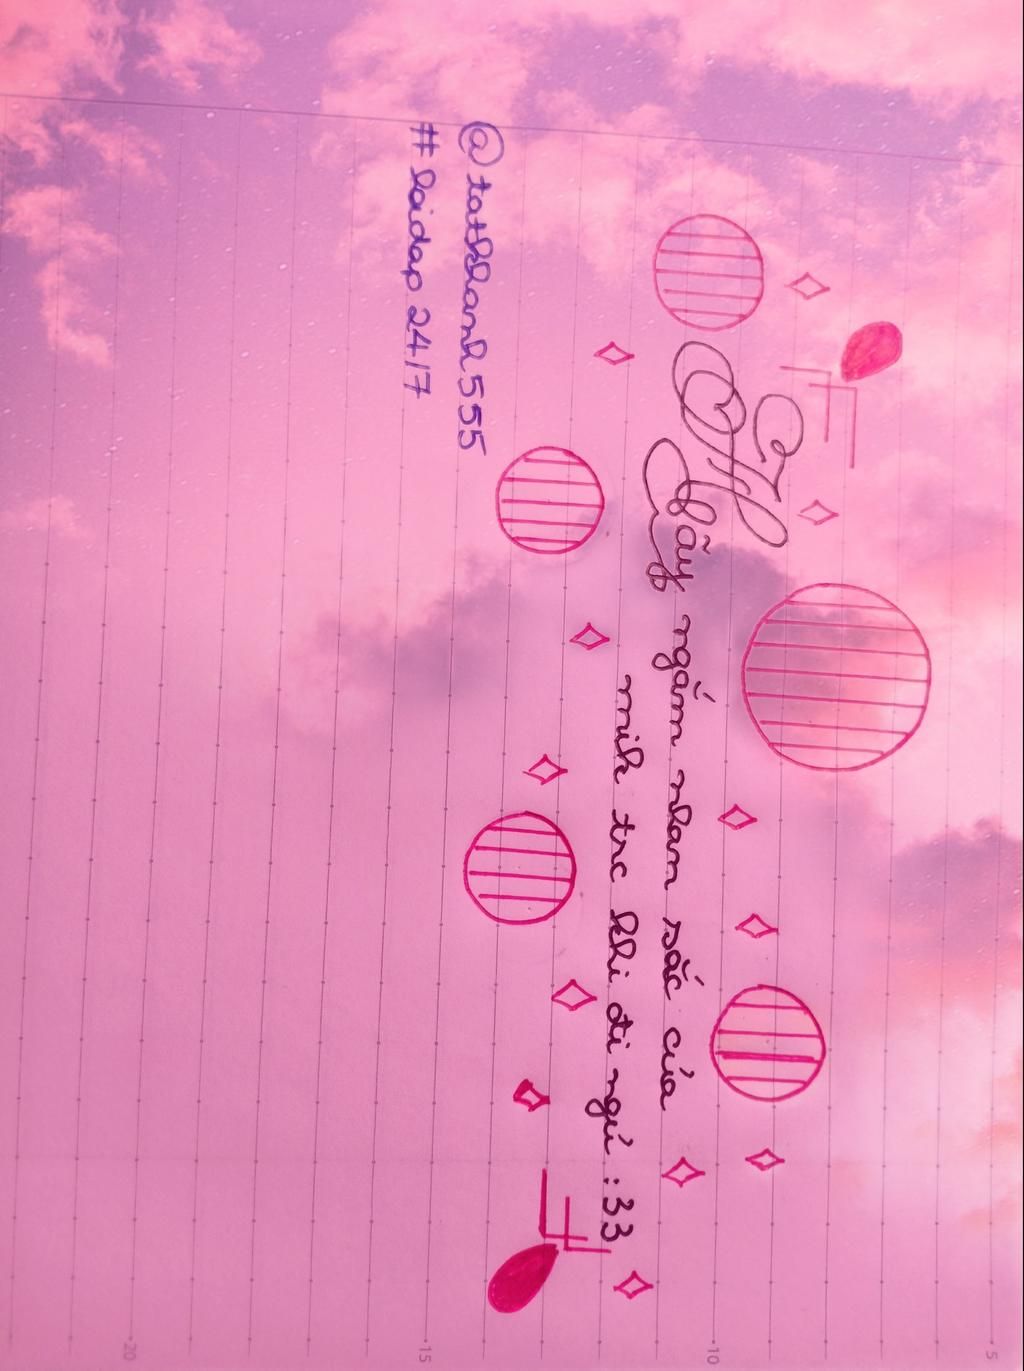 Hãy ngắm nhan sắc của
mih trc khi đi ngủ :33
@tathkhanh555
#loidap2417
5
10
15
20